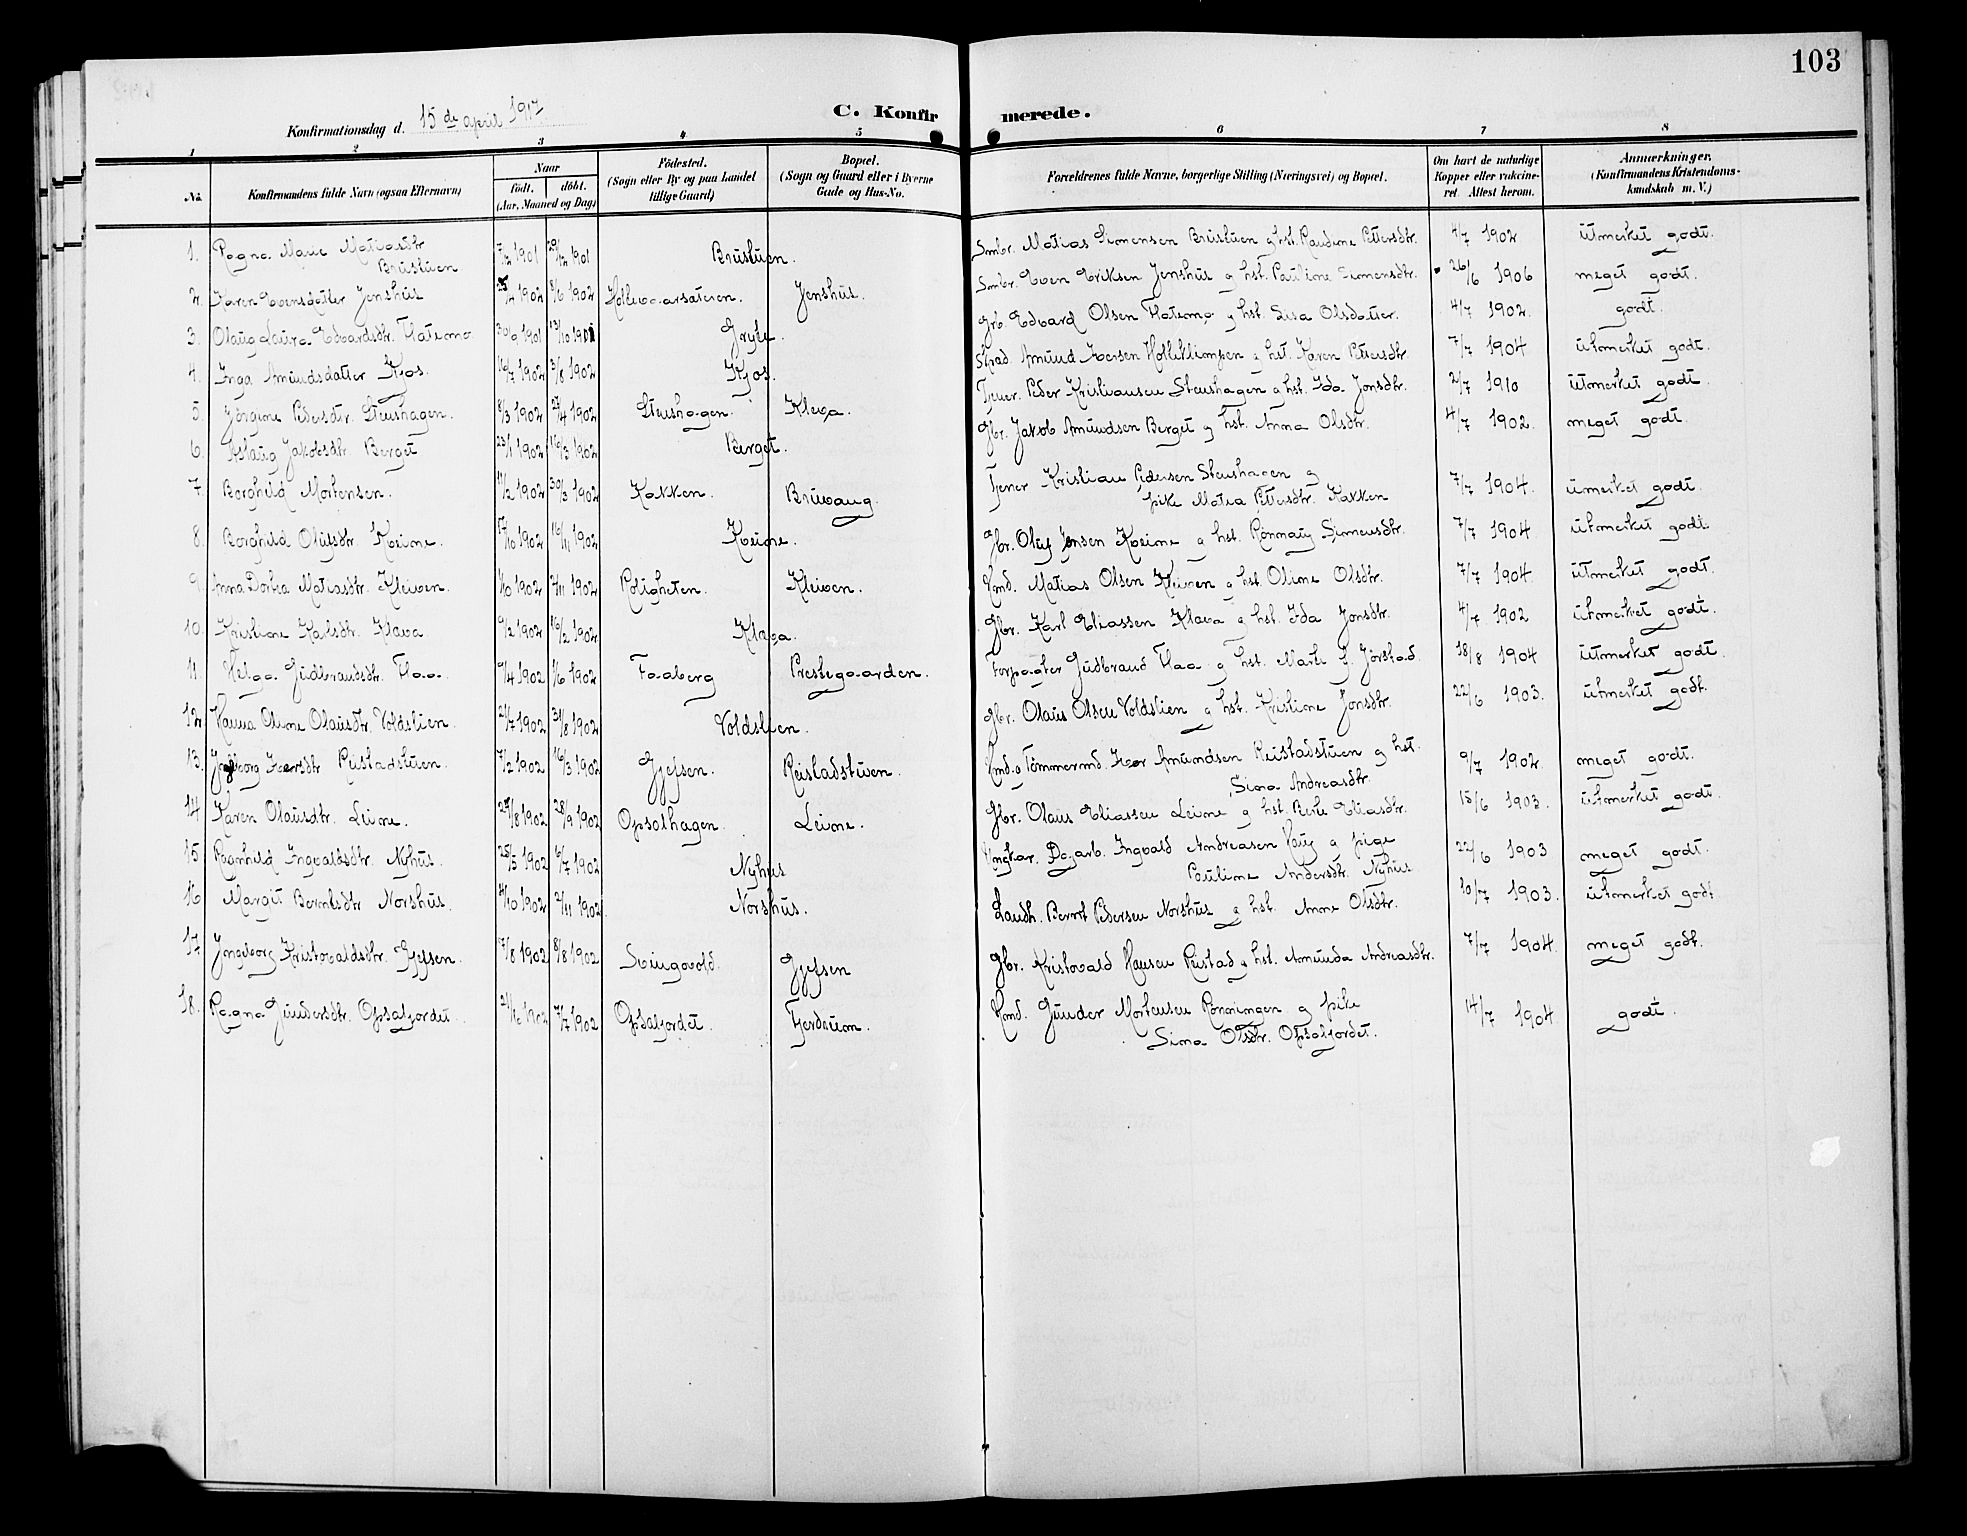 103
Konfirmationsdag d. 15de april 1917
C. Konfirmerede.
1 2 3 4 5 6 7 8
No. Konfirmandens fulde Navn (ogsaa Efternavn) Naar födt. döbt. (Aar, Maaned og Dag) Födested. (Sogn eller By og paa Landet tillige Gaard) Bopæl. (Sogn og Gaard eller i Byerne Gade og Hus-No. Forældrenes fulde Navne, borgerlige Stilling (Næringsvei) og Bopæl. Om havt de naturlige Kopper eller vaccineret. Attest herom. Anmærkninger. (Konfirmandens Kristendomskundskab m. V.)
1. Ragna Marie Matiasdtr Brustuen 7/12 1901 29/12 1901 Brustuen. Smbr. Matias Simensen Brustuen og hst. Randine Pettersdtr. 4/7 1902 utmerket godt.
2. Karen Evensdatter Jenshus 25/4 1902 8/6 1902 Jenshus. Smbr. Even Eriksen Jenshus og hst. Pauline Simensdtr. 26/6 1906 meget godt.
3. Olaug Laura Edvardsdtr. Flatemo 30/9 1901 13/10 1901 Gryte. Gbr. Edvard Olsen Flatemo og hst. Lisa Olsdatter. 4/7 1902. godt.
4. Inga Amundsdatter Kjos. 16/7 1902 3/8 1902 Kjos. Amund Iversen og hst. Karen Pettersdtr. 7/7 1904 utmerket godt.
5. Jörgine Pedersdtr. Steinshagen. 8/3 1902 27/4 1902 Steinshagen. Kleva. Tjener. Peder Kristiansen Steinshagen og hst. Ida Jonsdtr. 2/7 1910 utmerket godt
6. Aslaug Jakobsdtr. Berget 23/1 1902 16/3 1902 Berget. Gbr. Jakob Amundsen Berget og hst. Anna Olsdtr. 4/7 1902. meget godt.
7. Borghild Mortensen. 11/2 1902 30/3 1902 Kakken. Bruvang. Tjener Kristian Pedersen Steinshagen og
pike Matea Pettersdtr. Kakken 7/7 1904. umerket godt.
8. Borghild Olufsdtr. Kveine. 17/10 1902 16/11 1902 Kveine. Gbr. Oluf Jensen Kveine og hst. Rönnaug Simensdtr. 7/7 1904 utmerket godt
9. Anna Dortea Matiasdtr. Kleiven. 1/10 1902 2/11 1902 Roligheten. Kleiven. Hmd. Matias Olsen Kleiven og hst. Oline Olsdtr. 7/7 1904. utmerket godt.
10. Kristiane Karlsdtr. Klava 9/2 1902 16/2 1902 Klava. Gbr. Karl Eliassen Klava og hst. Ida Jonsdtr. 4/7 1902 utmerket godt.
11. Helga Gudbrandsdtr. Flaa. 9/4 1902 1/6 1902 Faaberg Prestegaarden. Forpagter Gudbrand Flaa og hst. Marte G. Jörstad. 18/8 1904 utmerket godt.
12. Hanna Oline Olausdtr. Voldslien. 21/7 1902 31/8 1902 Voldslien. Gbr. Olaus Olsen Voldslien og hst. Kristine Jonsdtr. 22/6 1903. utmerket godt.
13. Ingeborg Iversdtr Reistadstuen. 7/2 1902 16/3 1902 Gjefsen. Reistadstuen. Hmd. og Tömmermd. Iver Amundsen Reistadstuen og hst.
Sina Andreasdtr. 9/7 1902. meget godt.
14 Karen Olausdtr. Leine. 24/8 1902 28/9 1902 Opsalhagen. Leine. Gbr. Olaus Eliassen Leine og hst. Berte Eliasdtr. 15/6 1903. utmerket godt.
15 Ragnhild Ingvaldsdtr. Nyhus. 25/5 1902 6/7 1902 Nyhus Ungkar. Dagarb. Ingvald Andreasen Haug og pige
Pauline Andersdtr. Nyhus 22/6 1903 meget godt.
16 Margit Berntsdtr Norshus. 4/10 1902 2/11 1902. Norshus. Landh. Bernt Pedersen Norshus og hst. Anne Olsdtr. 10/7 1903. utmerket godt.
17 Ingeborg Kristovaldsdtr. Gjefsen. 7/8 1902 8/8 1902 Svingvold. Gjefsen Gbr. Kristovald Hansen Reistad og hst. Amunda Andreasdtr. 7/7 1904. meget godt.
18. Ragna Gundersdtr. Opsaljordet. 1902 7/7 1902 Opsaljordet. Fjerdum. Hmd. Gunder Mortensen Rönningen og pike
Sina Olsdtr. Opsaljordet. 14/7 1904 godt.